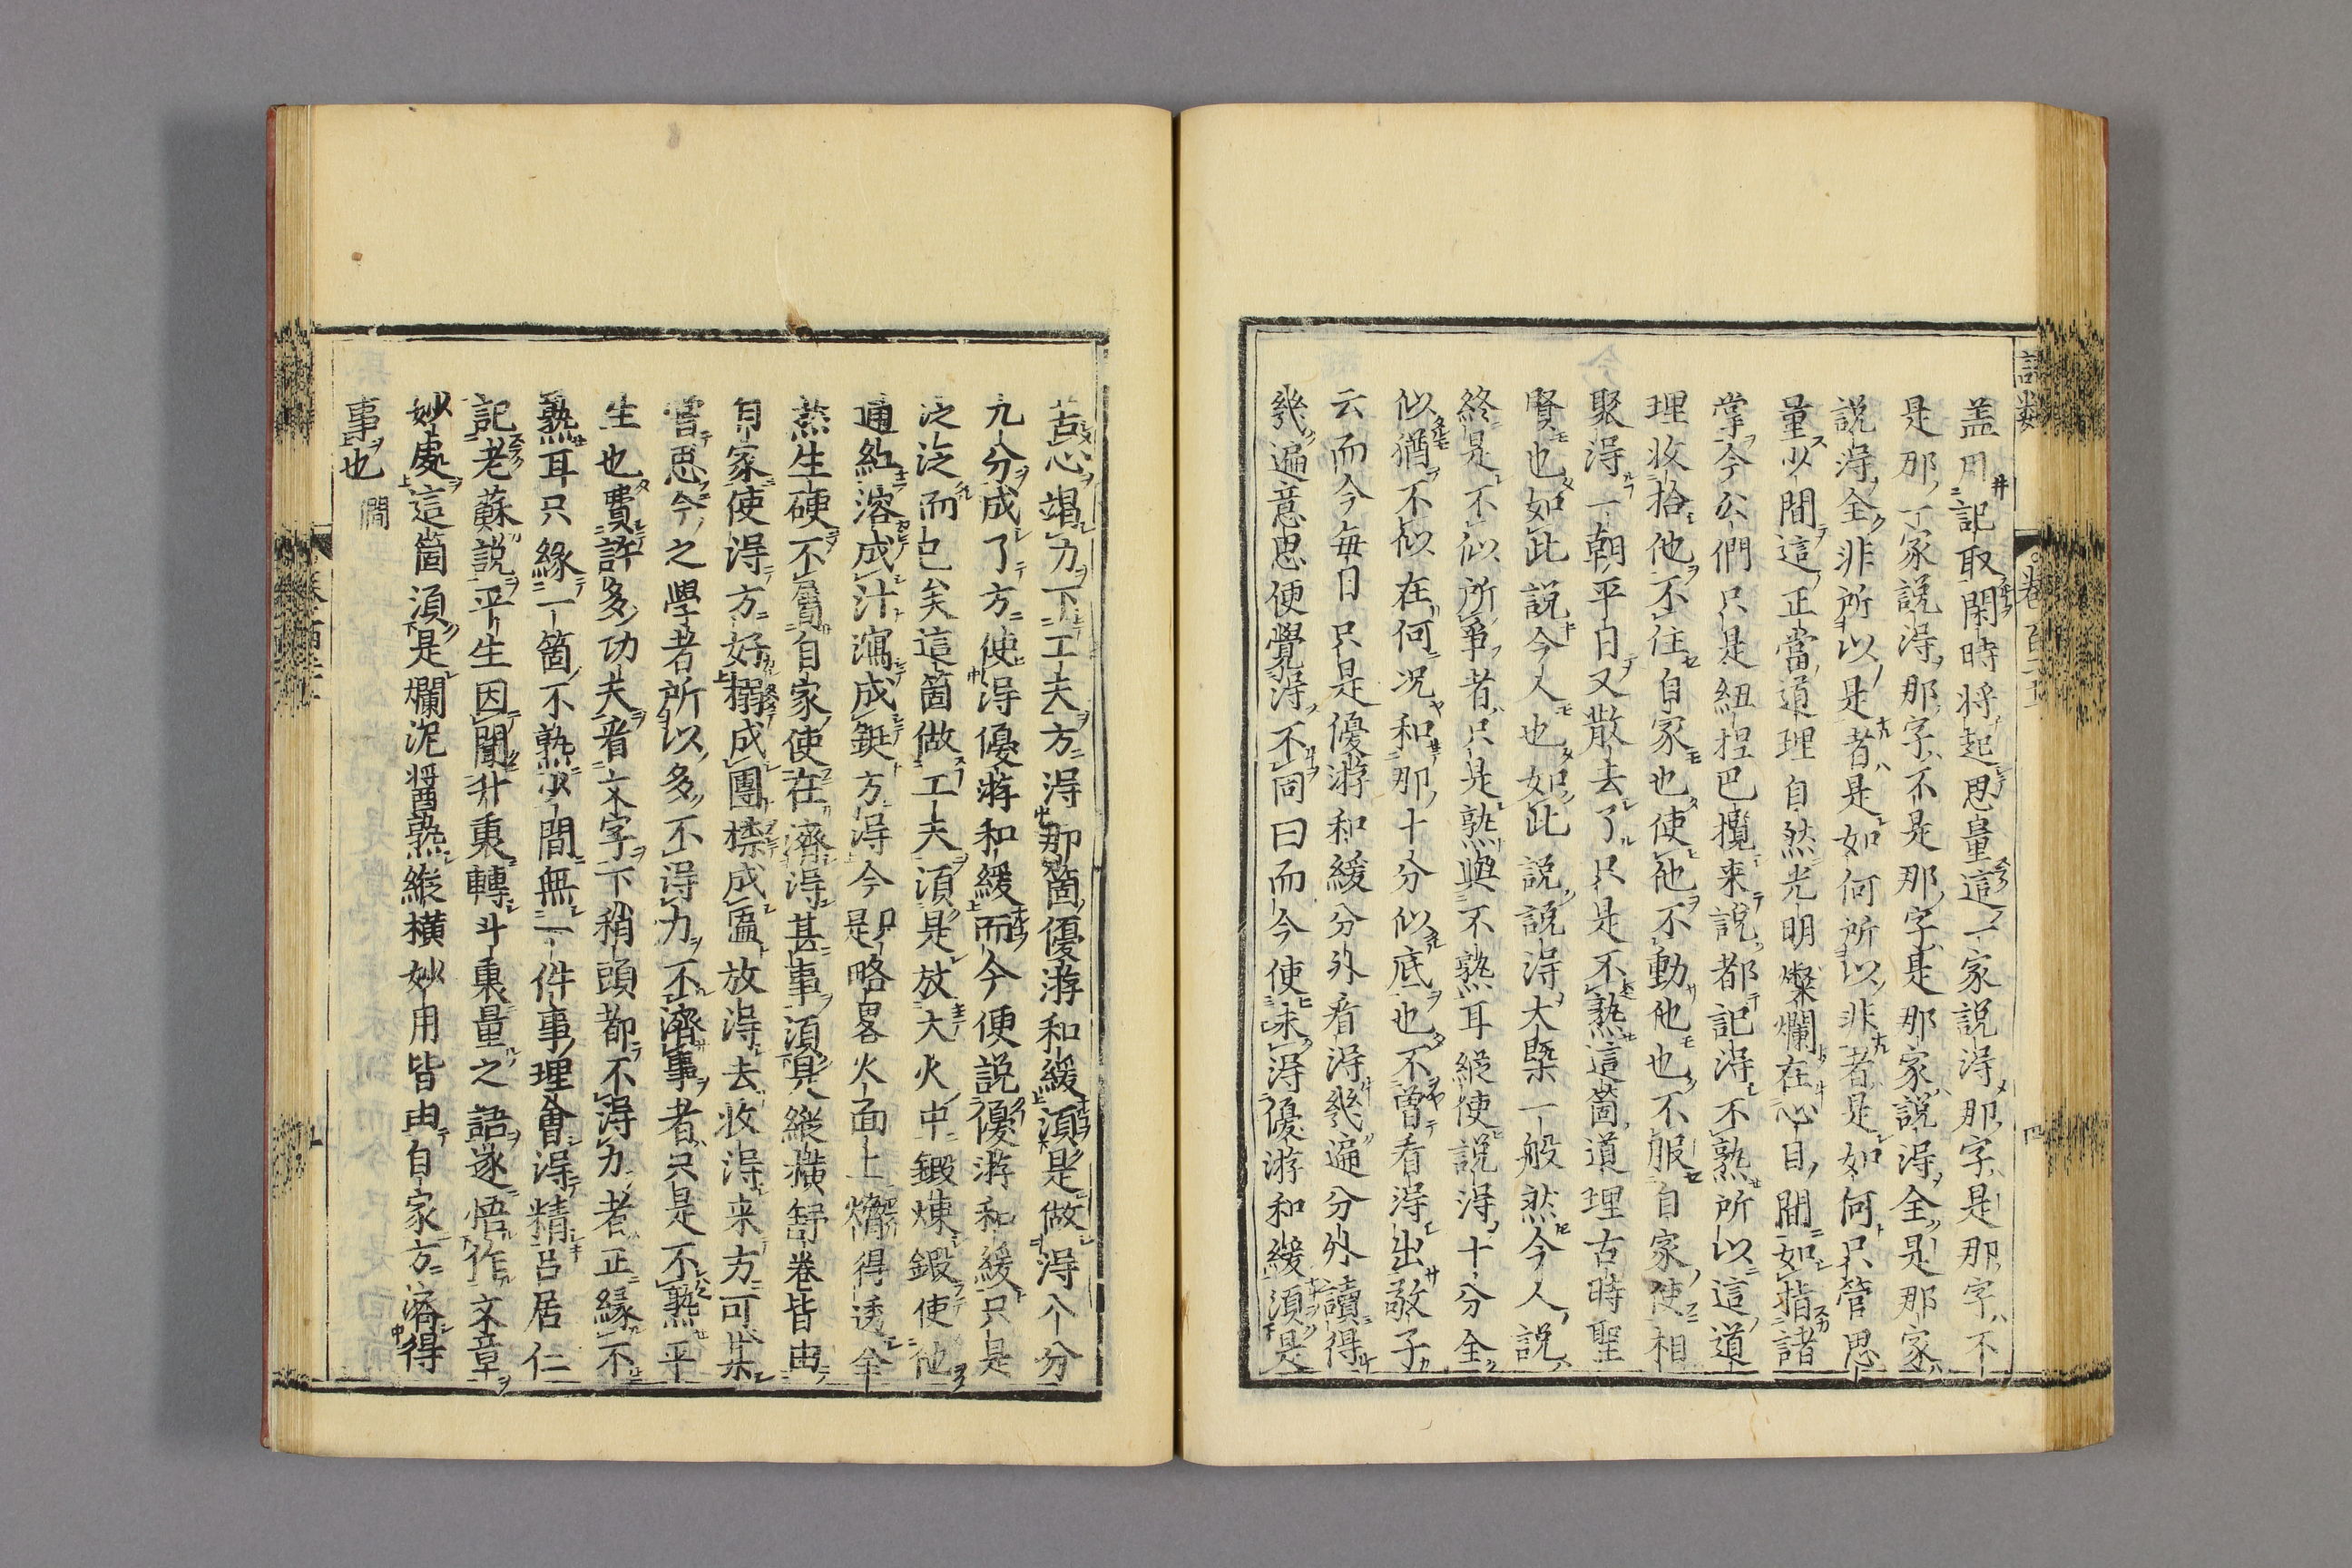 盖用記取閑時将起思量這一家説得那字是那字不
是那一家説得那字不是那字是那家説得全是那家
説得全非所以是者是如何所以非者是如何只管思
量少間這正當道理自然光明燦爛在心目間如指諸
掌今公們只是紐捏巴攬来説都記得不熟所以這道
理收拾他不住自家也使他不動他也不服自家使相
聚得一朝平日又散去了只是不熟這箇道理古時聖
賢也如此説今人也如此説説得大槩一般然今人説
終是不似所爭者只是熟與不熟耳縱使説得十分全
似猶不似在何况和那十分似底也不曽看得出敬子
云而今每日只是優游和緩分外看得幾遍分外讀得
幾遍意思便覺得不同曰而今使未得優游和緩須是
苦心竭力下工夫方得那箇優游和緩須是做得八分
九分成了方使得優游和緩而今便説優游和緩只是
泛泛而已矣這箇做工夫須是放大火中鍛煉鍛使他
通紅溶成汁瀉成鋌方得今只是略畧火面上爁得透全
然生硬不屬自家使在濟得甚事須是縱横舒巻皆由
自家使得方好搦成團㯲成匾放得去收得来方可某
嘗思今之學者所以多不得力不濟事者只是不熟平
生也費許多功夫㸔文字下稍頭都不得力者正縁不
熟耳只緣一箇不熟少間無一件事理會得精吕居仁
記老蘇説平生因聞升裏轉斗裏量之語遂悟作文章
妙處這箇須是爛泥醤熟縱横妙用皆由自家方濟得
事也 僩
語類
巻百二十
四